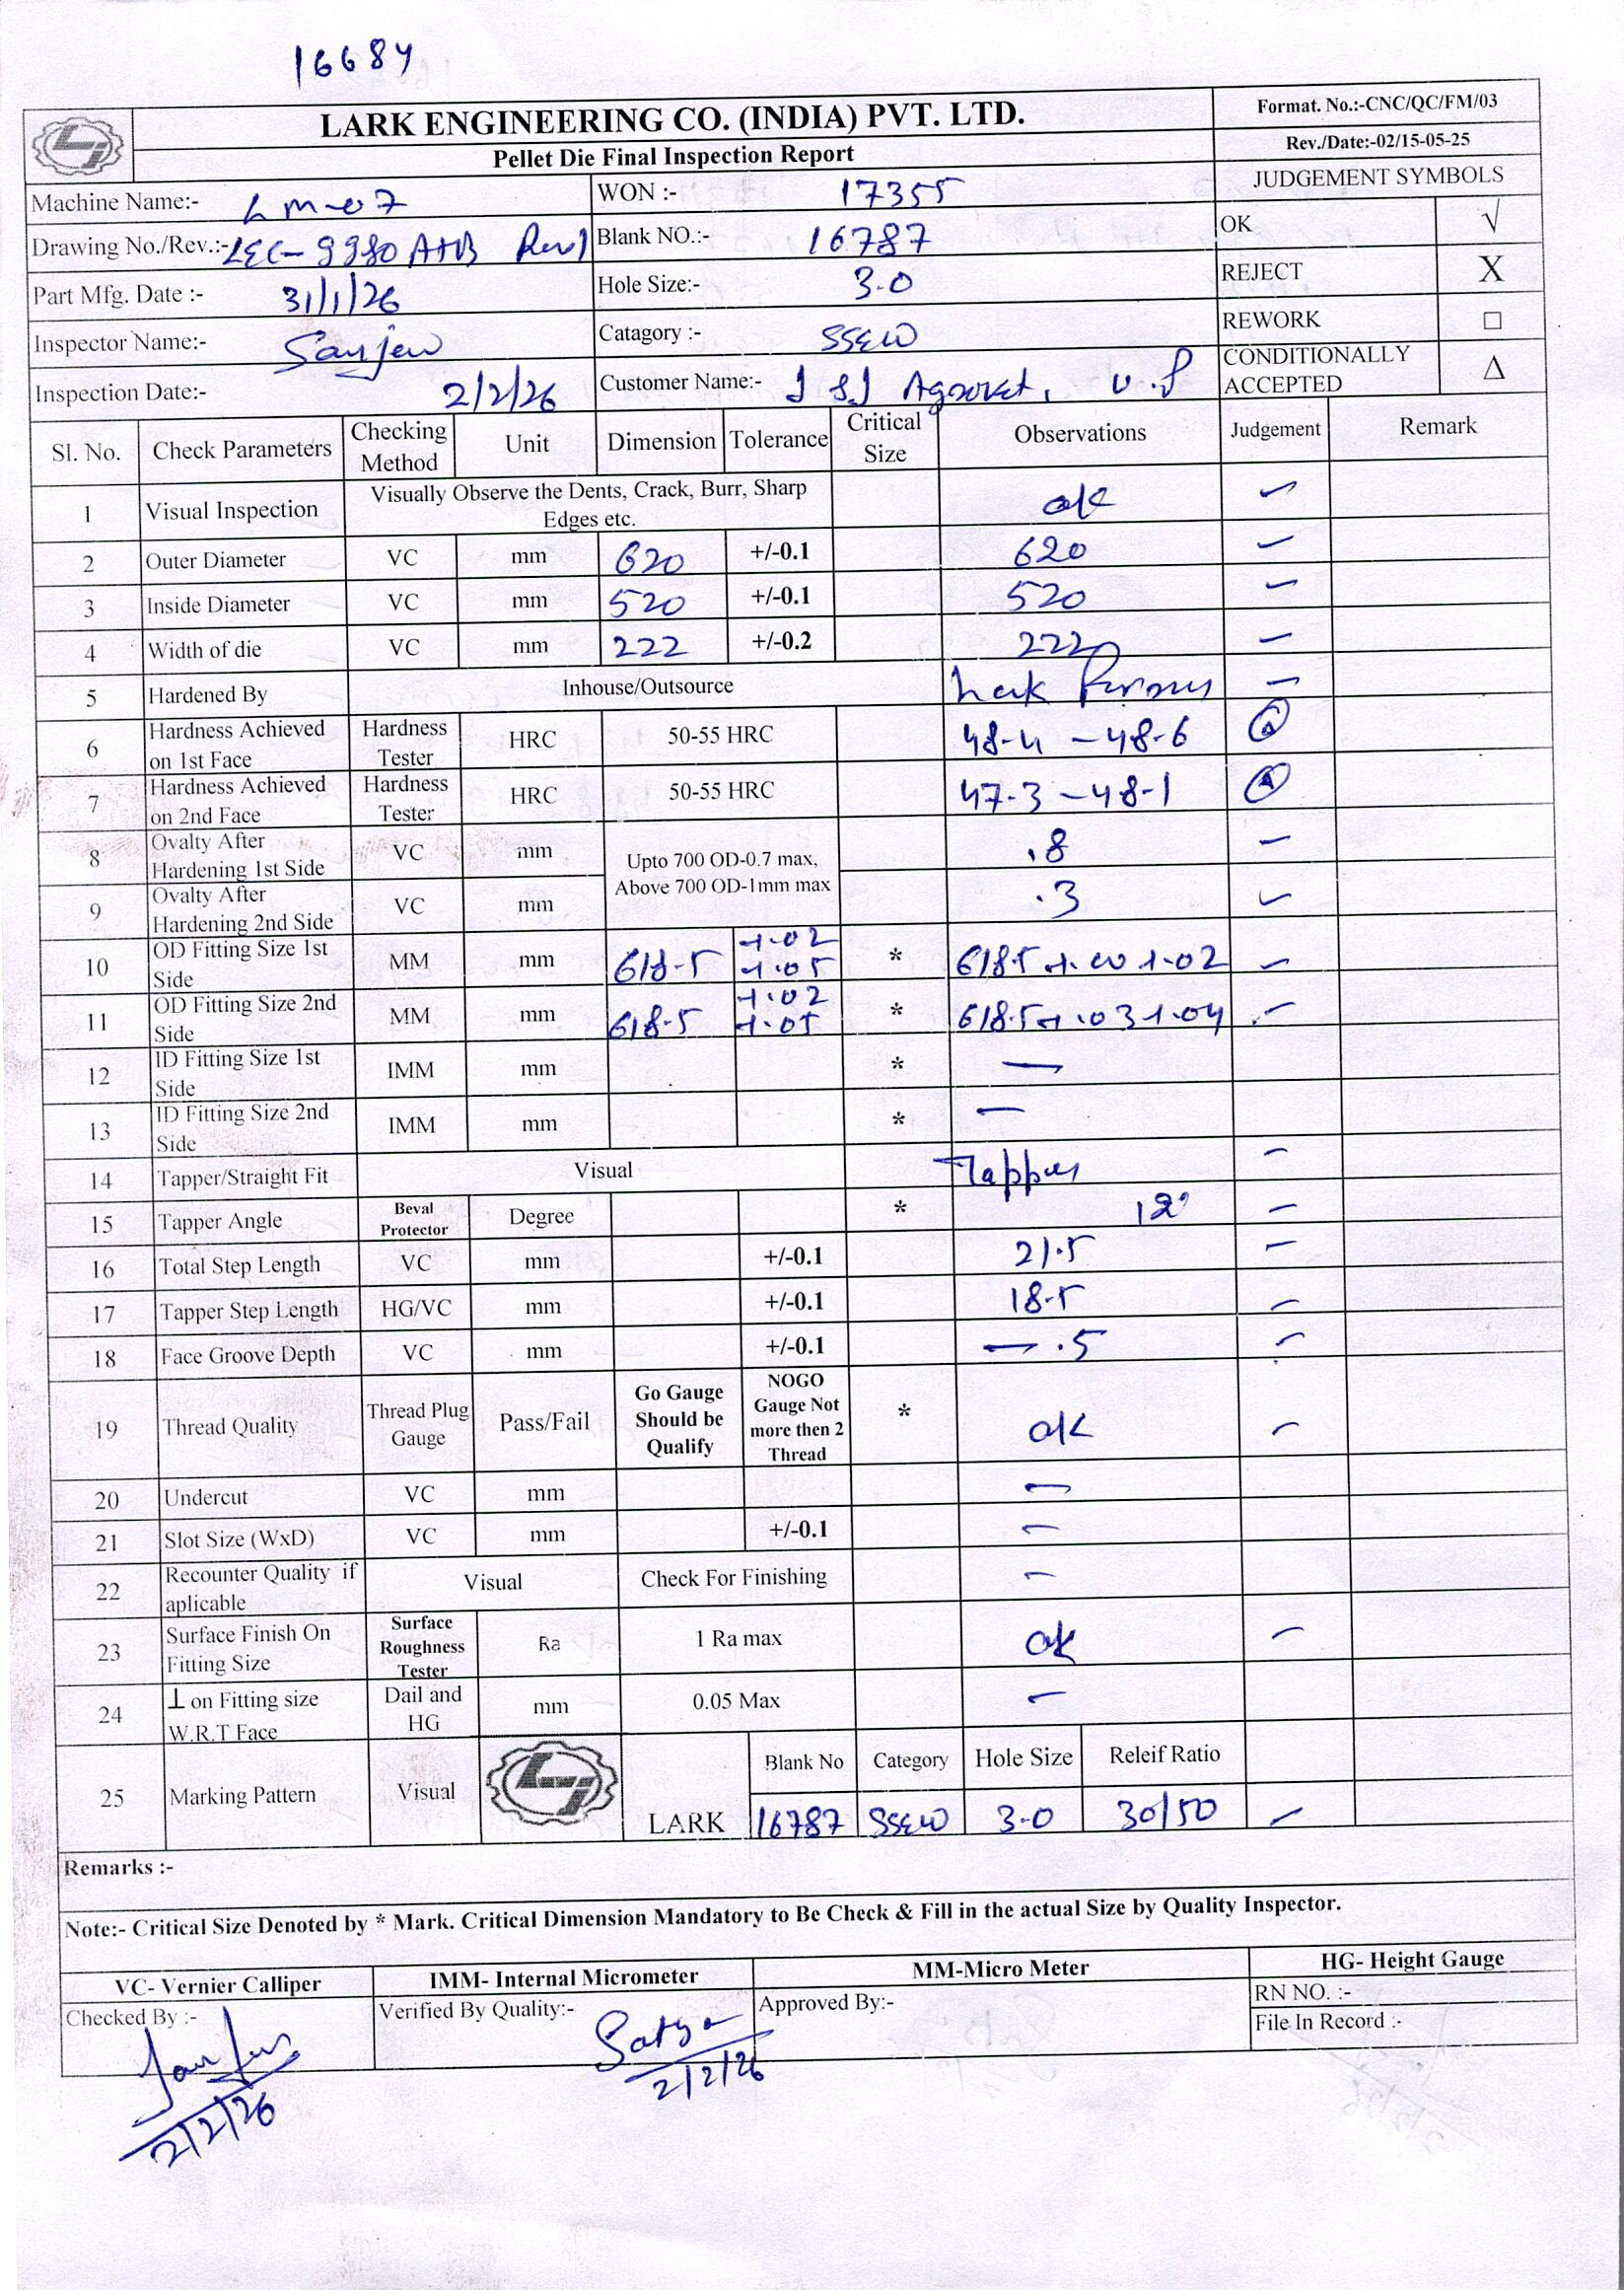 16684
LARK ENGINEERING CO. (INDIA) PVT. LTD.
Format. No.:-CNC/QC/FM/03
Pellet Die Final Inspection Report
Rev./Date:-02/15-05-25
Machine Name:- Lm-07 WON :- 17355 JUDGEMENT SYMBOLS
Drawing No./Rev.:- LEC-9980 A+B Rev1 Blank NO.:- 16787 OK √
Part Mfg. Date :- 31/1/26 Hole Size:- 3.0 REJECT X
Inspector Name:- Sanjeev Catagory :- SSEW REWORK □
Inspection Date:- 2/2/26 Customer Name:- J S J Agrovet, U.P CONDITIONALLY ACCEPTED Δ
Sl. No. Check Parameters Checking Method Unit Dimension Tolerance Critical Size Observations Judgement Remark
1 Visual Inspection Visually Observe the Dents, Crack, Burr, Sharp Edges etc. ok
2 Outer Diameter VC mm 620 +/-0.1 620
3 Inside Diameter VC mm 520 +/-0.1 520
4 Width of die VC mm 222 +/-0.2 222
5 Hardened By Inhouse/Outsource Lark
6 Hardness Achieved on 1st Face Hardness Tester HRC 50-55 HRC 48-4 - 48-6
7 Hardness Achieved on 2nd Face Hardness Tester HRC 50-55 HRC 47-3 - 48-1
8 Ovalty After Hardening 1st Side VC mm Upto 700 OD-0.7 max, Above 700 OD-1mm max .8
9 Ovalty After Hardening 2nd Side VC mm .3
10 OD Fitting Size 1st Side MM mm 618-5 +.02 +.05 * 618.5 +.00 +.02
11 OD Fitting Size 2nd Side MM mm 618-5 +.02 +.05 * 618.5 +.03 +.04
12 ID Fitting Size 1st Side IMM mm * —
13 ID Fitting Size 2nd Side IMM mm * —
14 Tapper/Straight Fit Visual Tapper
15 Tapper Angle Beval Protector Degree * 12°
16 Total Step Length VC mm +/-0.1 21.5
17 Tapper Step Length HG/VC mm +/-0.1 18-5
18 Face Groove Depth VC mm +/-0.1 — .5
19 Thread Quality Thread Plug Gauge Pass/Fail Go Gauge Should be Qualify NOGO Gauge Not more then 2 Thread * ok
20 Undercut VC mm —
21 Slot Size (WxD) VC mm +/-0.1 —
22 Recounter Quality if aplicable Visual Check For Finishing —
23 Surface Finish On Fitting Size Surface Roughness Tester Ra 1 Ra max ok
24 ⊥ on Fitting size W.R.T Face Dail and HG mm 0.05 Max —
Blank No Category Hole Size Releif Ratio
25 Marking Pattern Visual LARK 16787 SSEW 3-0 30/50
Remarks :-
Note:- Critical Size Denoted by * Mark. Critical Dimension Mandatory to Be Check & Fill in the actual Size by Quality Inspector.
VC- Vernier Calliper IMM- Internal Micrometer MM-Micro Meter HG- Height Gauge
Checked By :- Verified By Quality:- Approved By:- RN NO. :-
File In Record :-
Sanjeev Satya
2/2/26 2/2/26